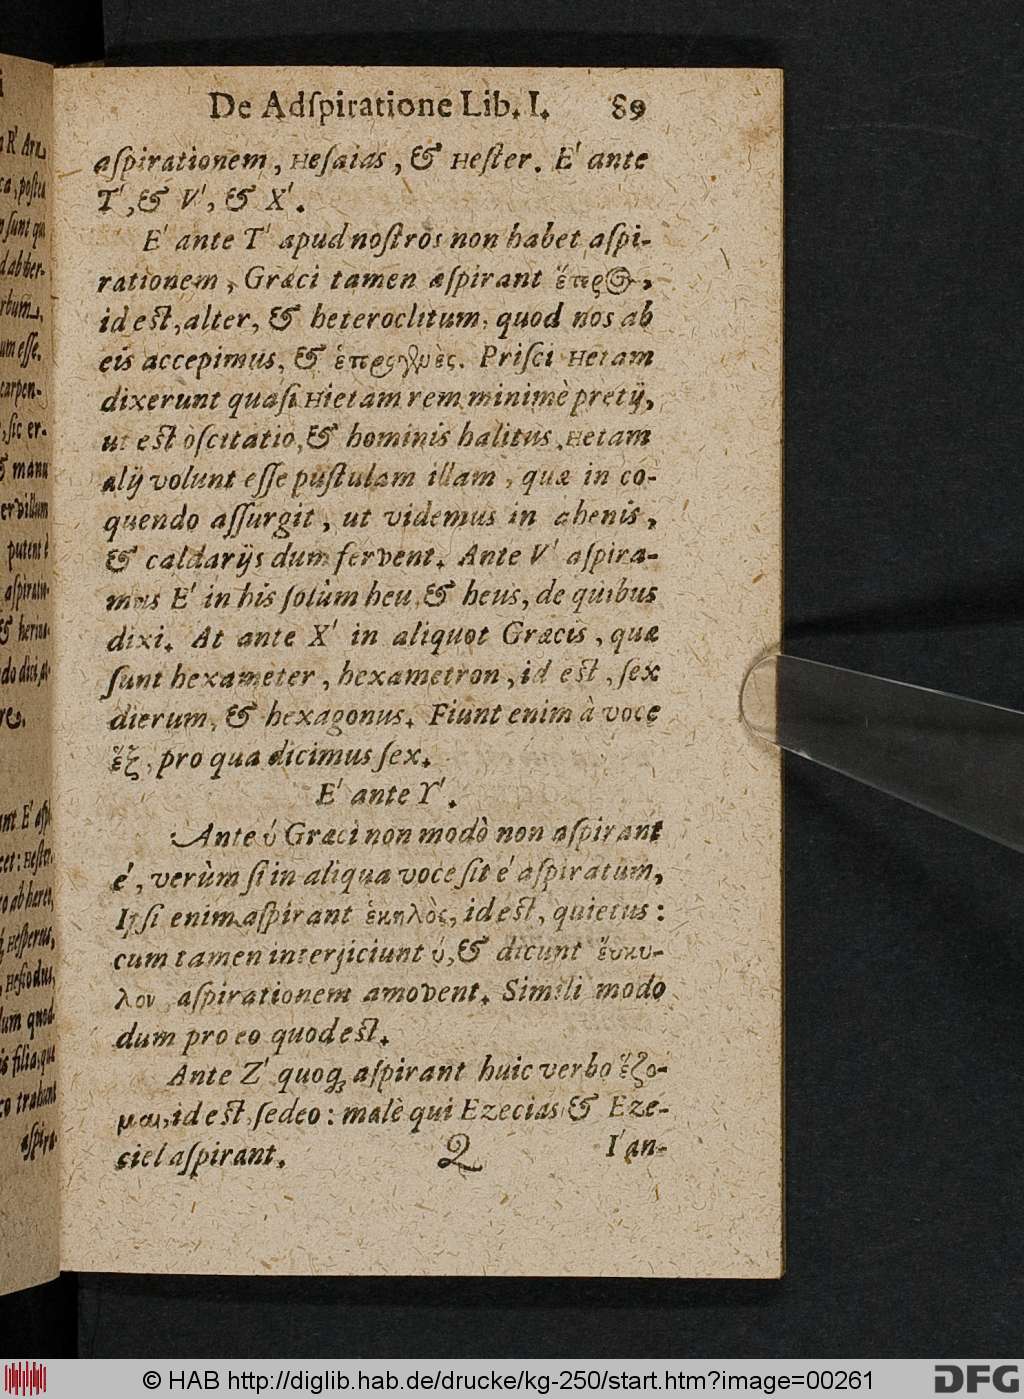 De Adſpiratione Lib. I. 89
aſpirationem, Heſaias, & Heſter. E' ante
T', & V', & X'.
E' ante T' apud noſtros non habet aſpi-
rationem, Græci tamen aſpirant
id est, alter, & heteroclitum, quod nos ab
eis accepimus, & Priſci Hetam
dixerunt quaſi Hietam rem minimè pretij,
ut est oſcitatio, & hominis halitus. Hetam
alij volunt eſſe puſtulam illam, quæ in co-
quendo aſſurgit, ut videmus in ahenis,
& caldarijs dum fervent. Ante V' aſpira-
mus E' in his ſolùm heu & heus, de quibus
dixi. At ante X' in aliquot Græcis, quæ
ſunt hexameter, hexametron, id est, ſex
dierum, & hexagonus. Fiunt enim à voce
ἕξ, pro qua dicimus ſex.
E' ante Y'.
Ante ύ Græci non modò non aſpirant
é, verùm ſi in aliqua voce ſit é aſpiratum,
Ipſi enim aſpirant ἑκηλὸς, id est, quietus:
cum tamen interjiciunt ύ, & dicunt ἔυκυ-
λον aſpirationem amovent. Simili modo
dum pro eo quod est.
Ante Z' quoq; aſpirant huic verbo ἕζο-
μαι, id est, ſedeo: malè qui Ezecias & Eze-
ciel aſpirant. Q I' an-
© HAB http://diglib.hab.de/drucke/kg-250/start.htm?image=00261
DFG